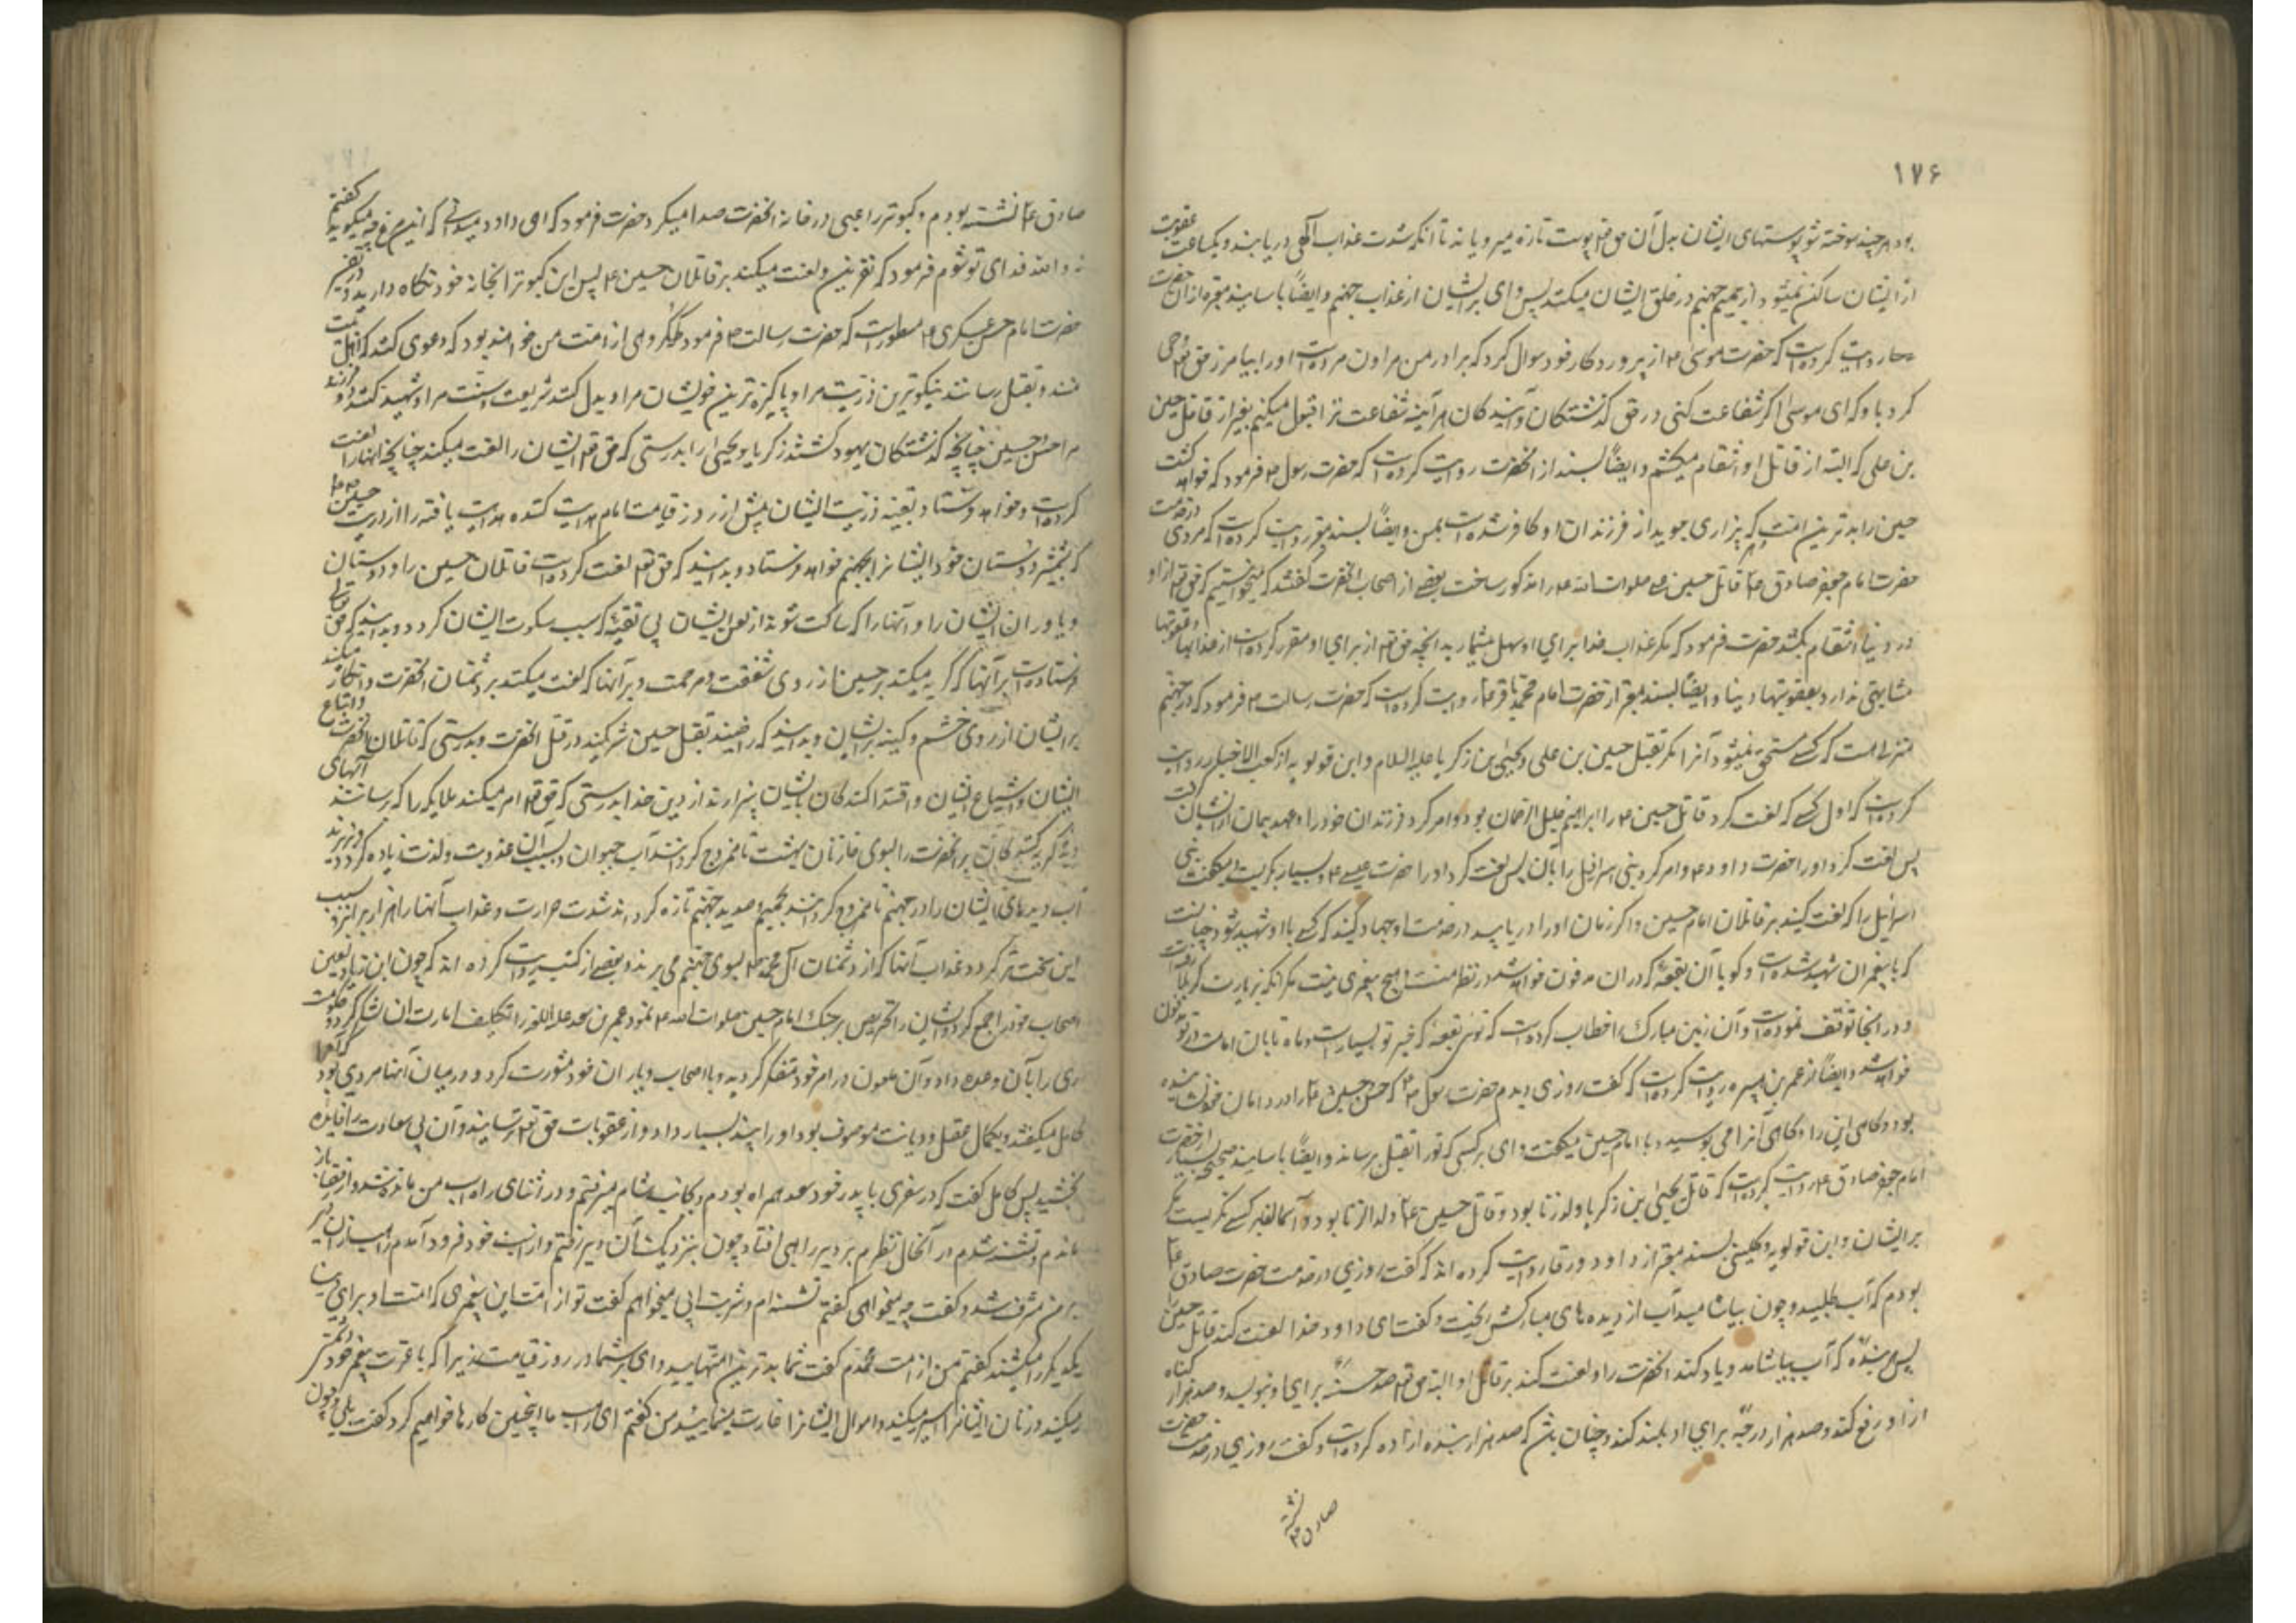 ۱۷۶
بود هر چند سوخته شود پوستهای ایشان بدل آن حق تع پوست تازه میرویاند تا آنکه شدت عذاب الهی دریابند و یکساعت عقوبت
از ایشان ساکن نمیشود و از حمیم جهنم در حلق ایشان میکنند پس وای بر ایشان از عذاب جهنم و ایضاً باسانید معتبره از آن حضرت
روایت کرده است که حضرت موسی ع از پروردگار خود سوال کرد که برادر من هارون مرده است او را بیامرز حق تع وحی
کرد باو که ای موسی اگر شفاعت کنی در حق گذشتگان و آیندگان هر آینه شفاعت ترا قبول میکنم بغیر از قاتل حسین
بن علی که البته از قاتل او انتقام میکشم و ایضاً بسند از آنحضرت روایت کرده است که حضرت رسول ص فرمود که خواهد کشت
حسین را بدترین امت که بیزاری جوید از فرزندان او کافر شده است بمن و ایضاً بسند معتبر روایت کرده است که مردی در خدمت
حضرت امام جعفر صادق ع قاتل حسین بن علی صلوات الله علیه را مذکور ساخت بعضے از اصحاب آنحضرت گفتند که میخواستیم که حق تع از او
در دنیا انتقام بکشد حضرت فرمود که مگر عذاب خدا برای او سهل میشمارید آنچه حق تع از برای او مقرر کرده است از عذابها و عقوبتها
مشابهتی ندارد بعقوبتهاء دنیا و ایضاً بسند معتبر از حضرت امام محمد باقر ع روایت کرده است که حضرت رسالت ص فرمود که در جهنم
منزلے است که کسے مستحق نمیشود آنرا مگر بقتل حسین بن علی و یحیی بن زکریا علیه السلام و ابن قولویه از کعب الاحبار روایت
کرده است که اول کسے که لعنت کرد قاتل حسین ع را ابراهیم خلیل الرحمان بود و امر کرد فرزندان خود را و عهد و پیمان از ایشان گرفت
پس لعنت کرد او را حضرت داود ع و امر کرد بنی اسرائیل را بآن پس لعنت کرد او را حضرت عیسے ع و بسیار میگفت بنی
اسرائیل را که لعنت کنید بر قاتلان امام حسین و اگر زمان او را دریابید در خدمت او جهاد کنید که کسے با او شهید شود چنانست
که با پیغمران شهید شده است و گویا آن بقعه که در آن مدفون خواهد شد در نظر منست و هیچ پیغمبری نیست مگر آنکه بزیارت کربلا رفت
و در آنجا توقف نموده است و آن زمین مبارک را خطاب کرده است که توئی بقعه که خیر تو بسیار است و ماه تابان امامت در تو مدفون
خواهد شد و ایضاً از عمر بن هبیره روایت کرده است که گفت روزی دیدم حضرت رسول ص که حسن و حسین ع را در دامان خود نشانیده
بود و گاهی این را و گاهی آنرا می بوسید و با امام حسین میگفت وای بر کسی که تو را بقتل برساند و ایضاً باسانید صحیحه بسیار از حضرت
امام جعفر صادق ع روایت کرده است که قاتل یحیی ابن زکریا ولد زنا بود و قاتل حسین ع ولد الزنا بود و آسمانها بر کسے نگریست مگر
بر ایشان و ابن قولویه و کلینی بسند معتبر از داود رقی روایت کرده اند که گفت روزی در خدمت حضرت صادق ع
بودم که آب طلبید و چون بیاشامید آب از دیده های مبارکش ریخت و گفت ای داود خدا لعنت کند قاتل حسین
پس هر بنده که آب بیاشامد و یاد کند آنحضرت را و لعنت کند بر قاتل او البته حق تع صد هزار حسنه برای او بنویسد و صد هزار گناه
از او رفع کند و صد هزار درجه برای او بلند کند و چنان باشد که صد هزار بنده آزاده کرده است و گفت روزی در خدمت حضرت
صادق ع نشسته
صادق ع نشسته بودم و کبوتر راعبی در خانه آنحضرت صدا میکرد حضرت فرمود که ای داود میدانی که این مرغ چه میگوید گفتم
نه والله فدای تو شوم فرمود که نفرین و لعنت میکند بر قاتلان حسین ع پس این کبوتر را بخانه خود نگاه دارید و در تفسیر
حضرت امام حسن عسکری ع مسطور است که حضرت رسالت ص فرمود که گروهی از امت من خواهند بود که دعوی کنند که از اهل ملت
منند و بقتل رسانند نیکوترین ذریت مرا و پاکیزه ترین خویشان مرا و بدل کنند شریعت و سنت مرا و شهید کنند دو فرزند
مرا حسن و حسین چنانچه گذشتگان یهود کشتند زکریا و یحیی را بدرستی که حق تع ایشان را لعنت میکند چنانچه آنها را لعنت
کرده است و خواهد فرستاد بر بقیه ذریت ایشان پیش از روز قیامت امام هدایت کننده هدایت یافته را از ذریت حسین ع
که بشمشیر دوستان خود ایشانرا بجهنم خواهد فرستاد و بدانید که حق تع لعنت کرده است قاتلان حسین را و دوستان
و یاوران ایشان را و آنها را که ساکت شوند از لعن ایشان بی تقیه که سبب سکوت ایشان گردد و بدانید که حق تعالی
فرستاده است بر آنها که گریه میکنند بر حسین از روی شفقت و مرحمت و بر آنها که لعنت میکنند بر دشمنان آنحضرت و انکار میکنند
بر ایشان از روی خشم و کینه بر ایشان و بدانید که راضیند بقتل حسین شریکند در قتل آنحضرت و بدرستی که قاتلان آنحضرت و اتباع
ایشان و اشیاع ایشان و اقتدا کنندگان بایشان بیزارند از دین خدا بدرستی که حق تع امر میکند ملایکه را که رسانند آبهای
دیده گریه کنندگان بر آنحضرت را بسوی خازنان بهشت تا ممزوج گردانند بآب حیوان و بسبب آن عذوبت و لذت زیاده گردد و میریزند
آب دیدهای ایشان را در جهنم تا ممزوج گردانند بحمیم و صدید جهنم تازه گرداند شدت حرارت و عذاب آنها را هزار برابر و بسبب
این سخت تر گردد عذاب آنها که از دشمنان آل محمد ص بسوی جهنم می برند و بعضے از کتب روایت کرده اند که چون ابن زیاد لعین
اصحاب خود را جمع کرد و ایشان را تحریص بر جنک امام حسین صلوات الله علیه نمود عمر بن سعد علیه اللعنة را تکلیف امارت آن لشکر کرد و حکومت
ری را بآن وعده داد و آن ملعون در امر خود متفکر گردید و با اصحاب و یاران خود مشورت کرد و در میان آنها مردی بود که آنرا
کامل میگفتند و بکمال عقل و دیانت موصوف بود او را پند بسیار داد و از عقوبات حق تع ترسانید و آن بی سعادت را فایده
نبخشید پس کامل گفت که در سفری با پدر خود سعد همراه بودم و بجانب شام میرفتم و در اثنای راه اسب من مانده شد و از رفقا باز
ماندم و تشنه شدم در آنحال نظرم بر دیر راهبی افتاد چون بنزدیک آن دیر رفتم و از اسب خود فرود آمدم راهب از آن دیر
بر من مشرف شد و گفت چه میخواهی گفتم تشنه ام و شربت آبی میخواهم گفت تو از امت این پیغمبری که امت او برای دنیا
یکدیگر را میکشند گفتم من از امت محمدم گفت شما بدترین امتهایید وای بر شما در روز قیامت زیرا که با عترت پیغمبر خود دشمنی
میکنید و زنان ایشانرا اسیر میکنید و اموال ایشانرا غارت مینمایید من گفتم ای راهب ما اینچنین کارها خواهیم کرد گفت بلی و چون